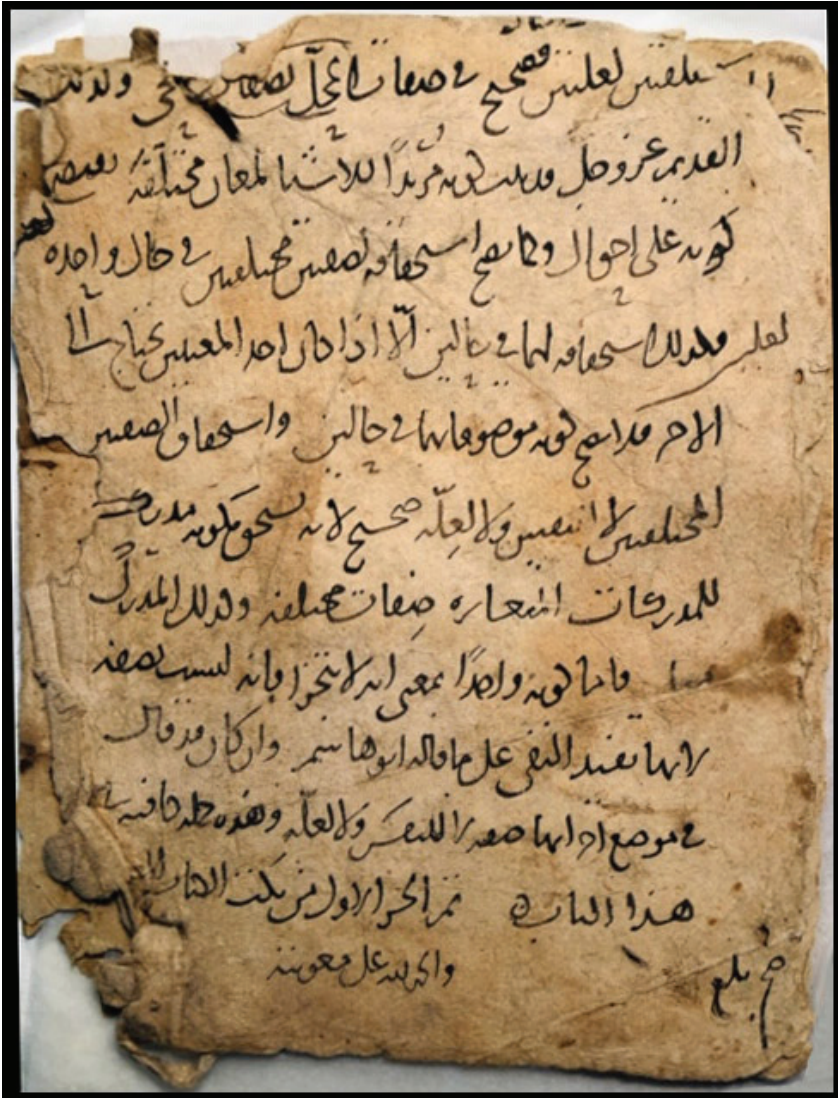 مختلفتين لعلتين فصحيح في صفات المحل
القديم عز وجل قد ثبت كونه مريدًا للأشيا لمعان مختلفة
كونه على احوال وكما يصح استحقاقه لصفتين مختلفتين في حال واحده
لعلتين فكذلك استحقاقه لهما في حالين الّا اذا كان احد المعنيين يحتاج الى
الاخر فكذا صح كونه موصوفا بهما في حالين واستحقاق الصفتين
المختلفتين لا لنفسين ولا لعلّه صحيح لانه يستحق بكونه مدركا
للمدركات المتغايره صفات مختلفه وكذلك المدرك
منا فاما كونه واحدًا بمعنى انه لا يتجزا فانه ليست بصفه
لانها تفيد النفى على ما قاله ابو هاشم وان كان قد قال
في موضع اخر انها صفه لا للنفس ولا لعلّه وهذه جمله كافيه في
هذا الباب تم الجزا الاول من نكت الكتاب
والحمد لله على معونته
صح بلغ